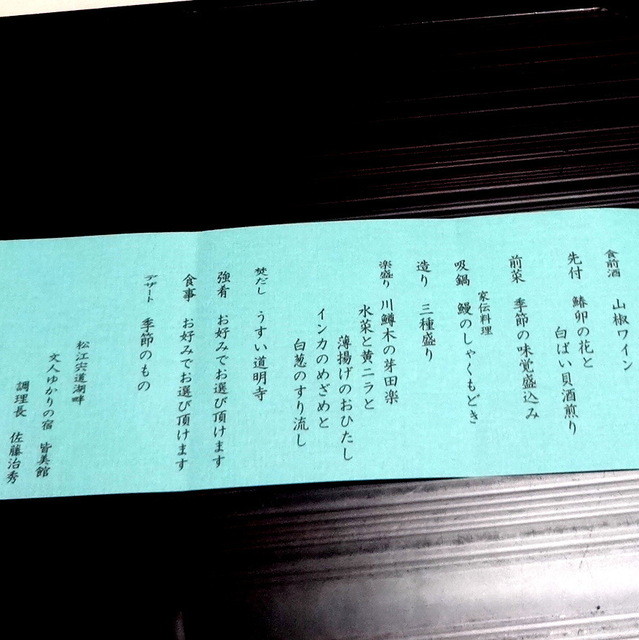 食前酒 山椒ワイン
先付 鰆卯の花と
白ばい貝酒煎り
前菜 季節の味覚盛込み
家伝料理
吸鍋 鰻のしゃくもどき
造り 三種盛り
楽盛り 川鱒木の芽田楽
水菜と黄ニラと
薄揚げのおひたし
インカのめざめと
白葱のすり流し
焚だし うすい道明寺
強肴 お好みでお選び頂けます
食事 お好みでお選び頂けます
デザート 季節のもの
松江宍道湖畔
文人ゆかりの宿 皆美館
調理長 佐藤治秀